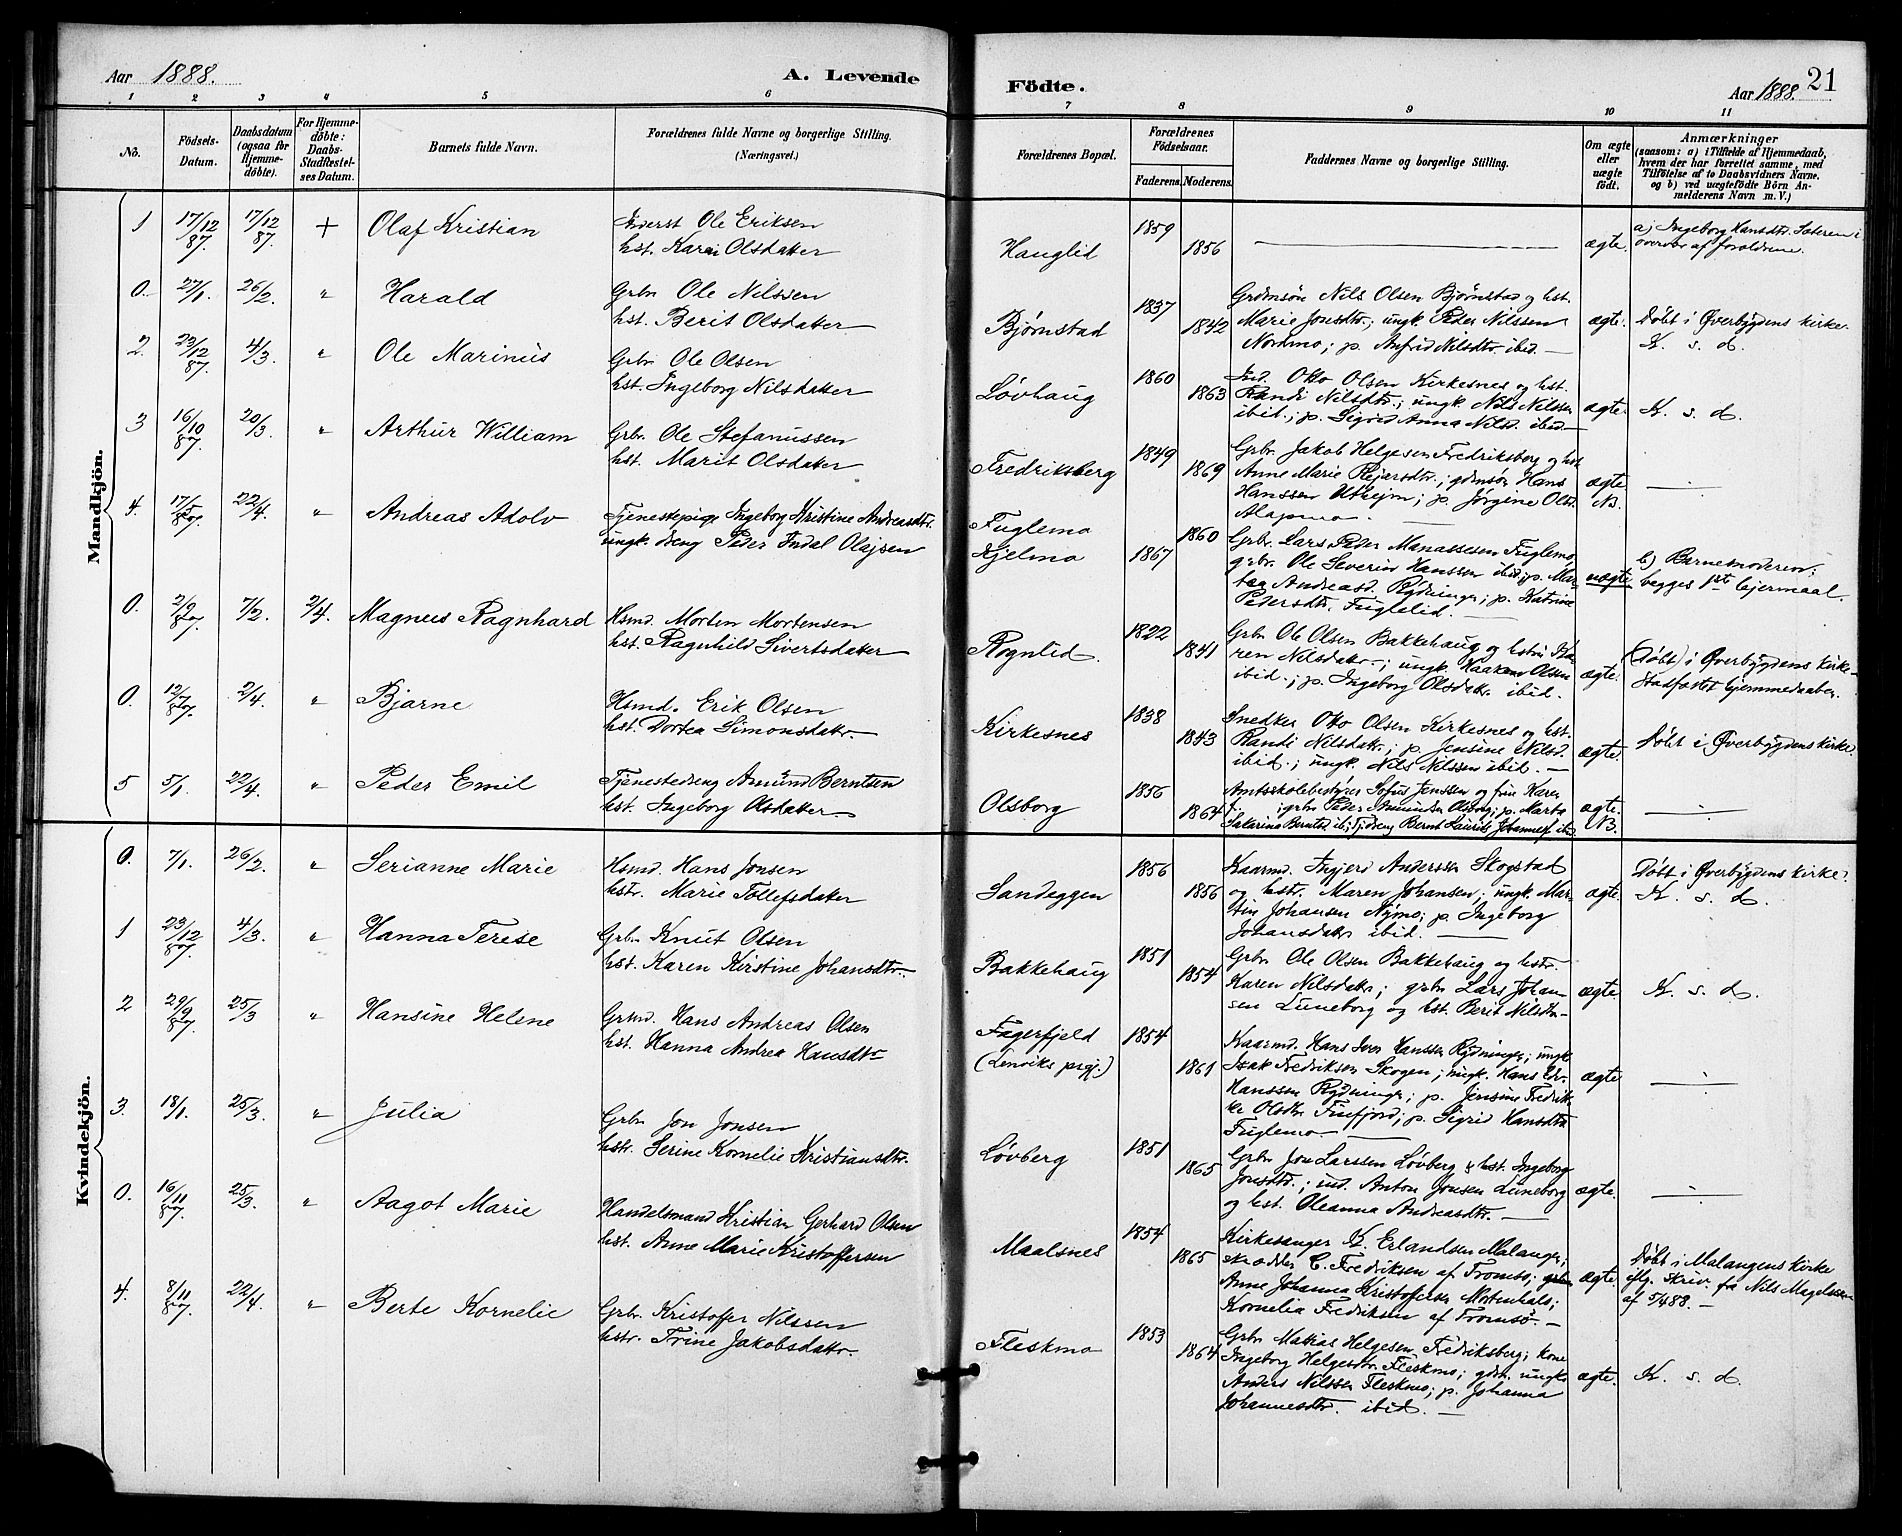 Aar 1888.
A. Levende
Födte.
Aar 1888.
21
1 2 3 4 5 6 7 8 9 10 11
No.
Födsels-
Datum.
Daabsdatum
(ogsaa for
Hjemme-
döbte).
For Hjemme-
döbte:
Daabs-
Stadfæstel-
ses Datum.
Barnets fulde Navn.
Forældrenes fulde Navne og borgerlige Stilling.
(Næringsvei.)
Forældrenes Bopæl.
Forældrenes
Födselsaar.
Faderens. Moderens.
Faddernes Navne og borgerlige Stilling.
Om ægte
eller
uægte
födt.
Anmærkninger
(saasom: a) i Tilfælde af Hjemmedaab,
hvem der har forrettet samme, med
Tilföielse af to Daabsvidners Navne.
og b) ved uægtefödte Börn An-
melderens Navn m. V.)
Mandkjön.
1 17/12 87. 17/12 87. + Olaf Kristian
Inderst Ole Eriksen
hst. Karen Olsdatter
Hauglid 1859 1856
ægte.
a) Ingeborg Hansdtr. Sæteren i
overvær af forældrene.
0. 27/1. 26/2. " Harald
Grbr. Ole Nilssen
hst. Berit Olsdatter
Bjørnstad 1837 1842
Grdmsøn Nils Olsen Bjørnstad og hst.
Marie Jonsdtr.; ungk. Peder Nilssen
Normmo; p. Anfrid Nilsdtr. ibid.
ægte.
Døbt i Øverbygdens kirke.
K. s. d.
2. 23/12 87. 4/3. " Ole Marinus
Grbr. Ole Olsen
hst. Ingeborg Nilsdatter
Løvhaug 1860 1863
Ind. Otto Olsen Kirkesnes og hst.
Randi Nilsdtr.; ungk. Nils Nilssen
ibid.; p. Sigrid Anna Nilsd. ibid.
ægte.
K. s. d.
3 16/10 87. 20/3. " Arthur William
Grbr. Ole Stefanussen
hst. Marit Olsdatter
Fredriksberg 1849 1869
Grbr. Jakob Helgesen Fredriksberg og hst.
Anne Marie Rejersdtr.; gdmsøn Hans
Hanssen Olsheim; p. Jørgine Olsd.
Alapmo.
ægte
N.
4. 17/5 87. 22/4. " Andreas Adolv
Tjenestepige Ingeborg Kristine Andreasdtr.
ungk. dreng Peder Indal Olajsen
Fuglemo
Kjelmo 1867 1860
Grbr. Lars Peder Manassesen Fuglemo,
grbr. Ole Severin Hanssen ibid; p. Mar-
ta Andreasd. Rydninge; p. Katrine
Pedersdtr. Fuglelid.
uægte
b) Barnemoderen;
begges 1st lejermaal.
0. 2/2 87. 7/2. 2/4. Magnus Ragnhard
Hsmd. Morten Mortensen
hst. Ragnhild Sivertsdatter
Rognlid. 1822 1841
Grbr. Ole Olsen Bakkehaug og hstru Ka-
ren Nilsdatr.; ungk. Haaken Olsen
ibid.; p. Ingeborg Olsdatr. ibid.
ægte.
(Døbt) i Øverbygdens kirke
Stadfæstet hjemmedaaben
0. 12/7 87. 2/4. " Bjarne
Hsmd. Erik Olsen
hst. Dortea Simonsdatr.
Kirkesnes 1838 1843
Snedker Otto Olsen Kirkesnes og hst.
Randi Nilsdatr.; p. Jensine Nilsd.
ibid.; ungk. Nils Nilssen ibid.
ægte.
Døbt i Øverbygdens kirke.
5 5/1. 22/4. " Peder Emil
Tjenestedreng Amund Berntsen
hst. Ingeborg Olsdatter.
Olsborg 1856 1864
Amtsskolebestyrer Sofus Jenssen og fru Karen
J.; grbr. Peder Amundsen Olsborg; p. Marta
Sakarina Berntsd. ib.; Tj.dreng Bernt Laurids Johannes. ibid
ægte.
N.
Kvindekjön.
0. 7/1. 26/2. " Serianne Marie
Hsmd. Hans Jonsen
hstr. Marie Tollefsdatter
Sandeggen 1856 1856
Kaarmd. Ingjerd Anderssen Skogstad
og hstr. Maren Johansen; ungk. Mar-
tin Johansen Nymo; p. Ingeborg
Johansdatr ibid.
ægte.
Døbt i Øverbygdens kirke.
K. s. d.
1 23/12 87. 4/3. " Hanna Terese
Grbr. Knut Olsen
hst. Karen Kirstine Johansdtr.
Bakkehaug 1851 1854
Grbr. Ole Olsen Bakkehaug og hstr.
Karen Nilsdatr.; grbr. Lars Johan-
sen Luneborg og hst. Berit Nilsdtr.
ægte.
K. s. d.
2 29/9 87. 25/3 " Hansine Helene
Grmd. Hans Andreas Olsen
hst. Hanna Andrea Hansdtr
Fagerfjeld
(Lenviks prgj.) 1854 1861
Kaarmd. Hans Iver Hanssen Rydninge; ungk
Isak Fredriksen Skogen; ungk. Hans Edv.
Hanssen Rydninge; p. Jensine Fredrik-
ke Olsdtr Finfjord; p. Sigrid Hansdtr
Fuglemo.
ægte
3. 18/1. 25/3. " Julia
Grbr. Jon Jonsen
hstr. Serine Kornelie Kristiansdtr.
Løvberg 1851 1865
Grbr. Jon Larssen Løvberg & hst. Ingeborg
Jonsdtr.; ind. Anton Jonsen Luneborg
og hst. Oleanna Andreasdtr.
ægte.
0. 16/11 87. 25/3. " Aagot Marie
Handelsmand Kristian Gerhard Olsen
hst. Anne Marie Kristoffersen
Maalsnes 1854 1865
Kirkesanger K. Erlandsen Malangen;
skrædder C. Fredriksen af Tromsø;
Anne Johanna Kristoffersen Mortenhals;
Kornelia Fredriksen af Tromsø.
ægte.
Døbt i Malangens kirke
iflg. skriv. fra Nils Magelssen
af 5/488.
4. 8/11 87. 22/4. " Berte Kornelie
Grbr. Kristoffer Nilssen
hstr. Trine Jakobsdatr.
Fleskmo 1853 1864
Grbr. Matias Helgesen Fredriksberg; kone
Ingeborg Helgesdtr. Fleskmo; gdbr. ungk.
Anders Nilssen Fleskmo; p. Johanna
Johannesdtr. ibid.
ægte.
K. s. d.